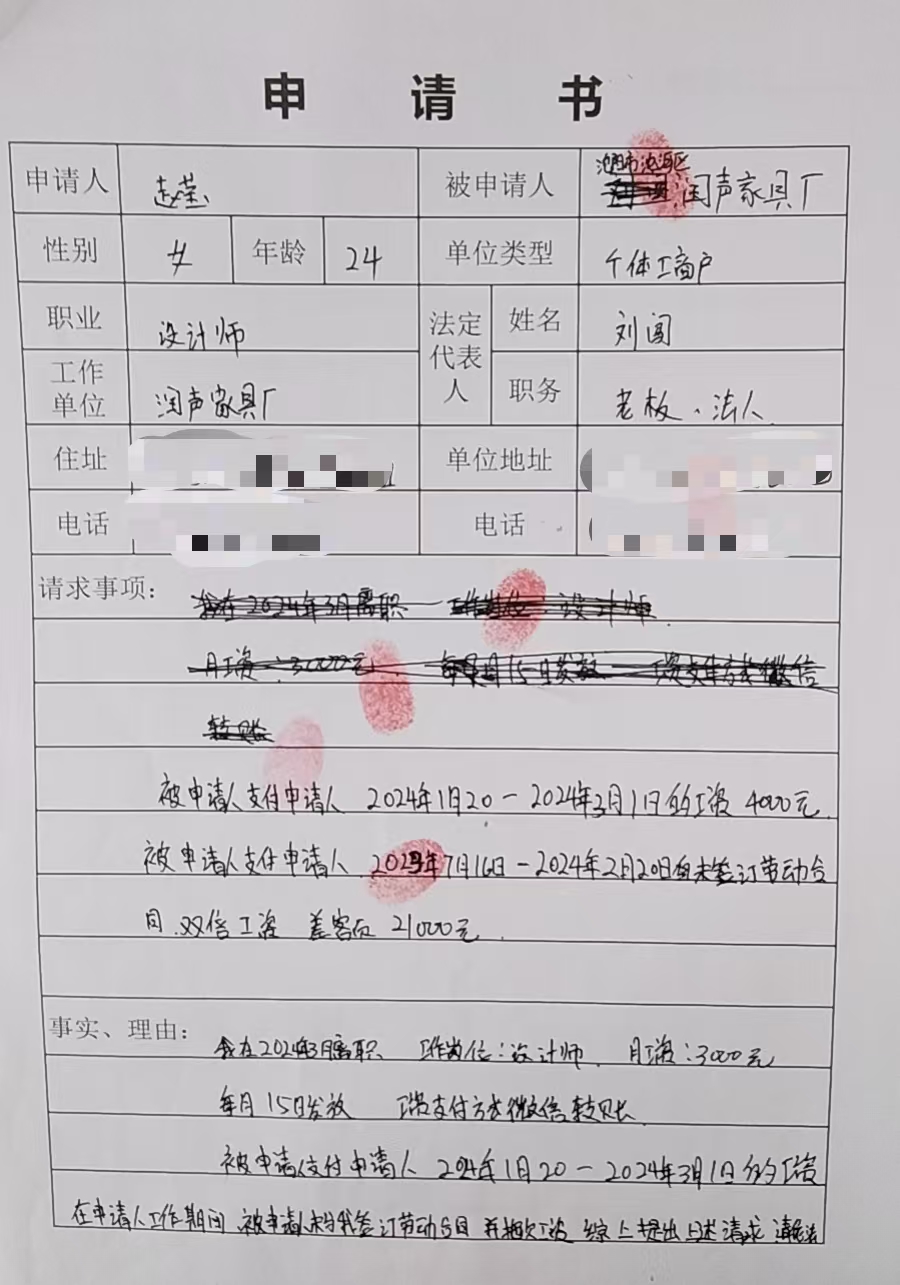 申请书
申请人 赵莹 被申请人 润声家具厂
性别 女 年龄 24 单位类型 个体工商户
职业 设计师 法定代表人 姓名 刘闯
工作单位 润声家具厂 职务 老板、法人
住址 单位地址
电话 电话
请求事项:
我在2024年3月离职 设计师
月工资:3000元 每月15日发放 工资支付方式微信
转账
被申请人支付申请人 2024年1月20-2024年3月1日的工资 4000元.
被申请人支付申请人 2023年7月16日-2024年2月20日自未签订劳动合
同 双倍工资 差额 21000元.
事实、理由:
我在2024年3月离职 工作岗位:设计师 月工资:3000元
每月15日发放 工资支付方式微信转账
被申请人支付申请人 2024年1月20-2024年3月1日的工资
在申请人工作期间 被申请人未与我签订劳动合同 并拖欠工资 综上提出上述请求